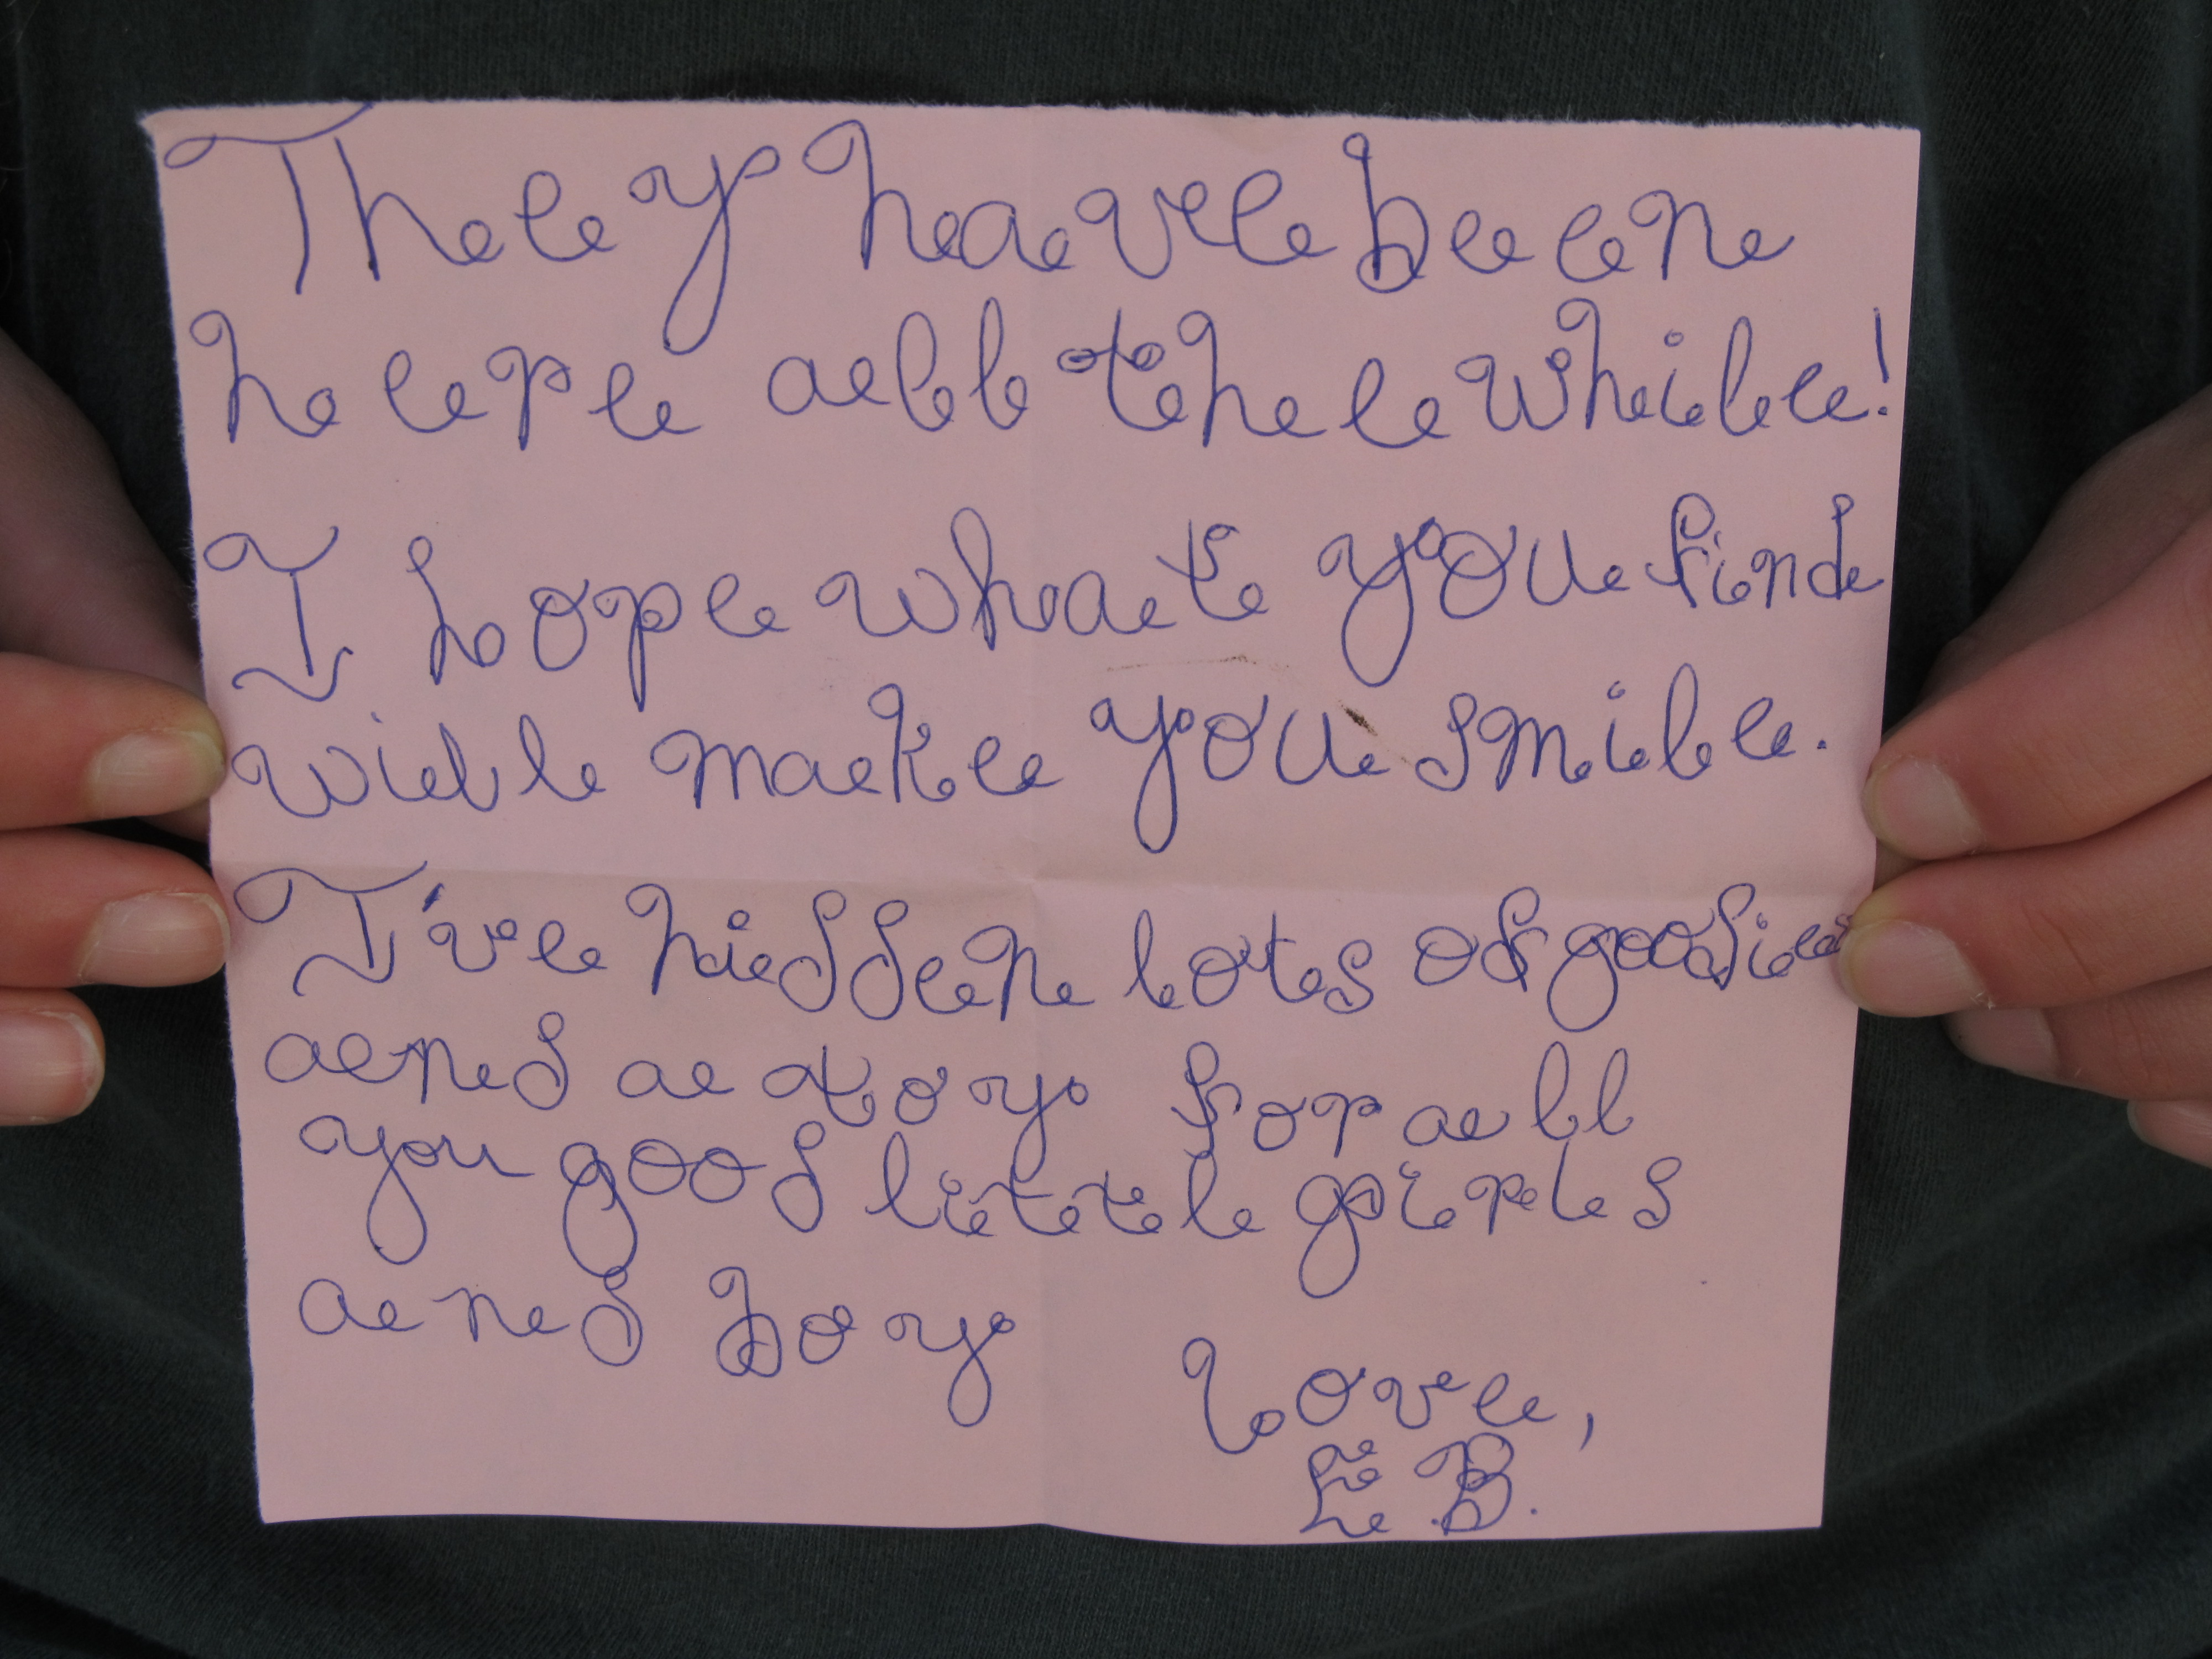 They have been
here all the while!
I hope what you find
will make you smile.
I've hidden lots of goodies
and a toy for all
you good little girls
and boy
Love,
E.B.